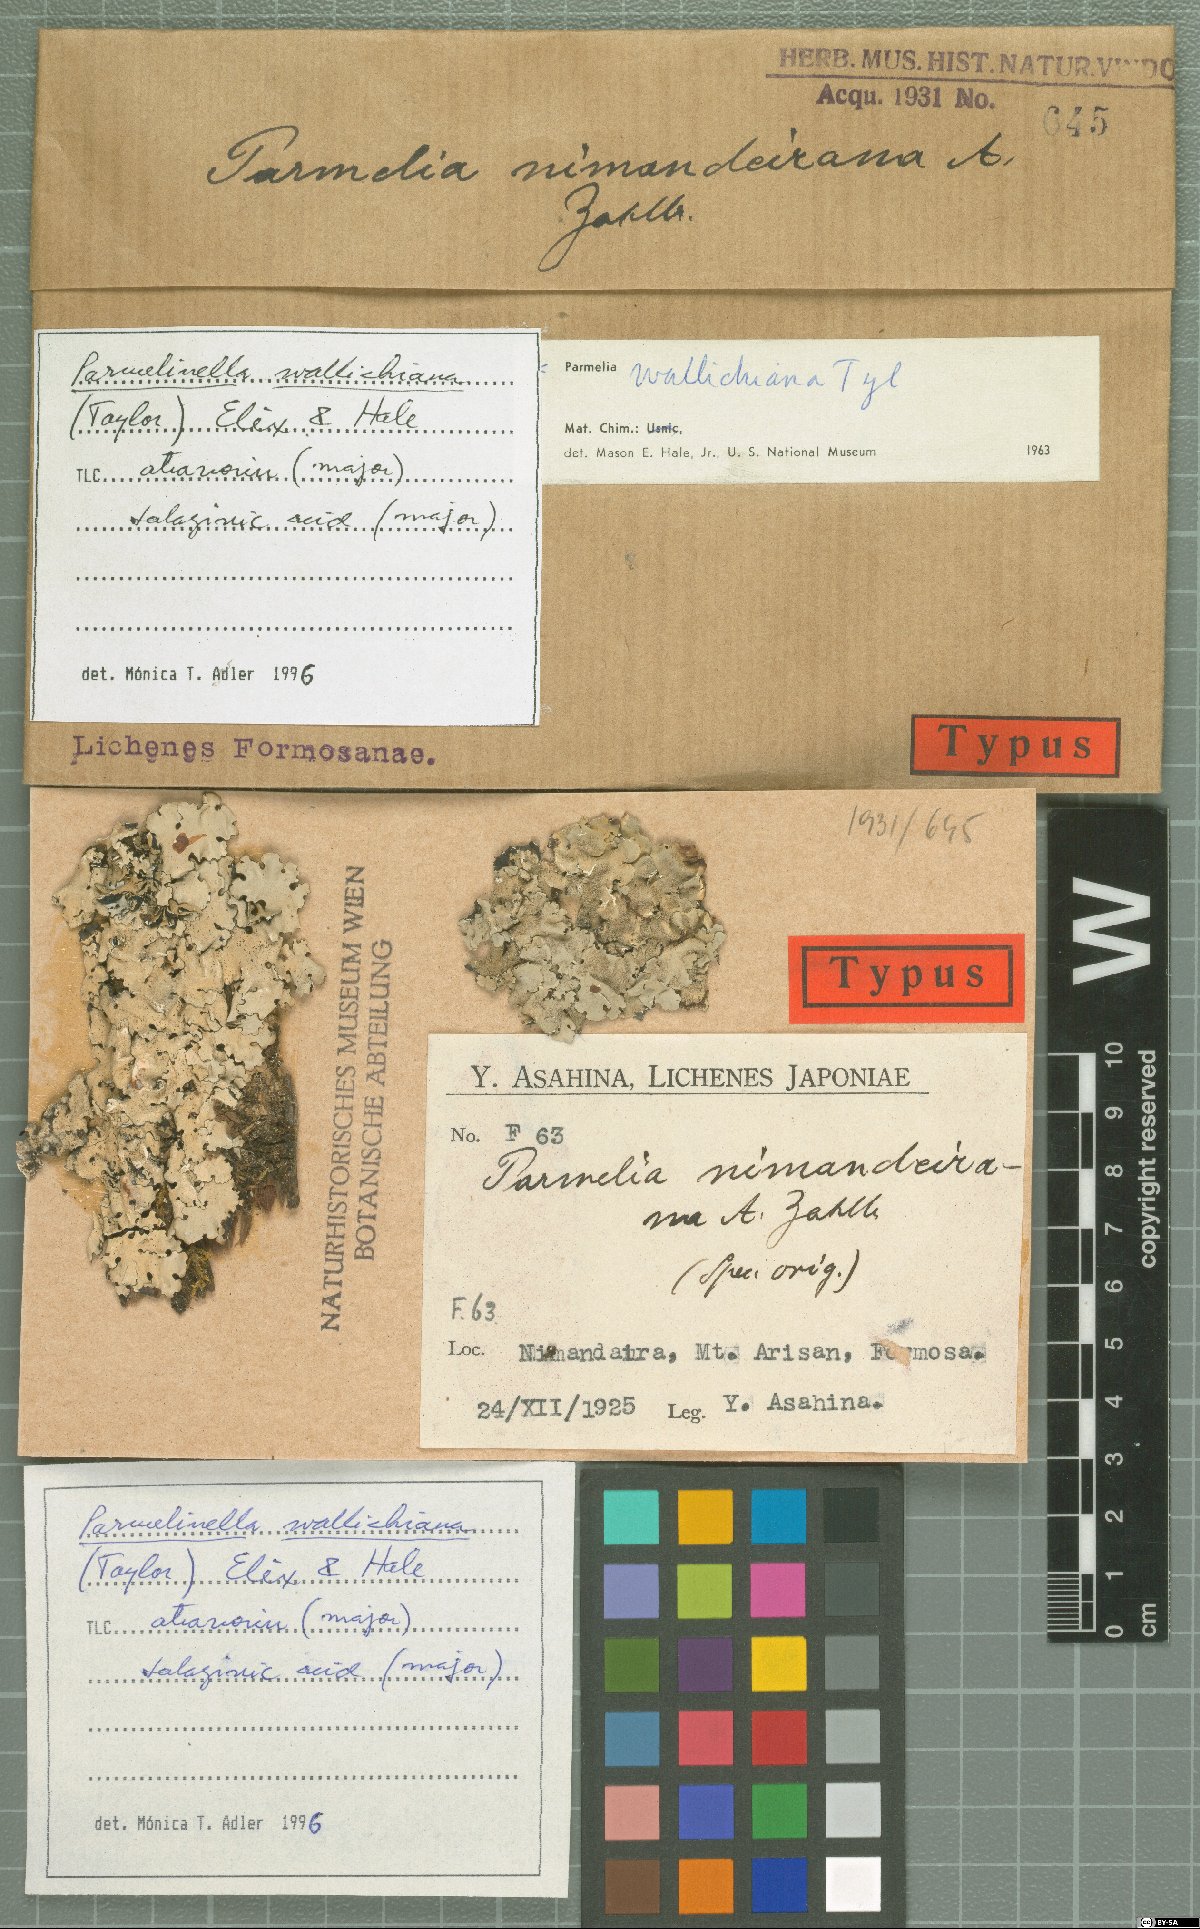 HERB. MUS. HIST. NATUR. VINDO
Acqu. 1931 No. 645
Parmelia nimandeirana A.
Zahlbr.
Parmelinella wallichiana
(Taylor) Elix & Hale
TLC atranorin (major)
salazinic acid (major)
det. Mónica T. Adler 1996
= Parmelia wallichiana Tyl
Mat. Chim.: Usnic,
det. Mason E. Hale, Jr., U. S. National Museum 1963
Lichenes Formosanae.
Typus
1931/645
NATURHISTORISCHES MUSEUM WIEN
BOTANISCHE ABTEILUNG
Typus
Y. ASAHINA, LICHENES JAPONIAE
No. F 63
Parmelia nimandeira-
na A. Zahlbr.
(Spec. orig.)
F.63
Loc. Nimandaira, Mt. Arisan, Formosa.
24/XII/1925 Leg. Y. Asahina.
W
10 9 8 7 6 5 4 3 2 1 0
cm
copyright reserved
Parmelinella wallichiana
(Taylor) Elix & Hale
TLC atranorin (major)
salazinic acid (major)
det. Mónica T. Adler 1996
cc BY-SA